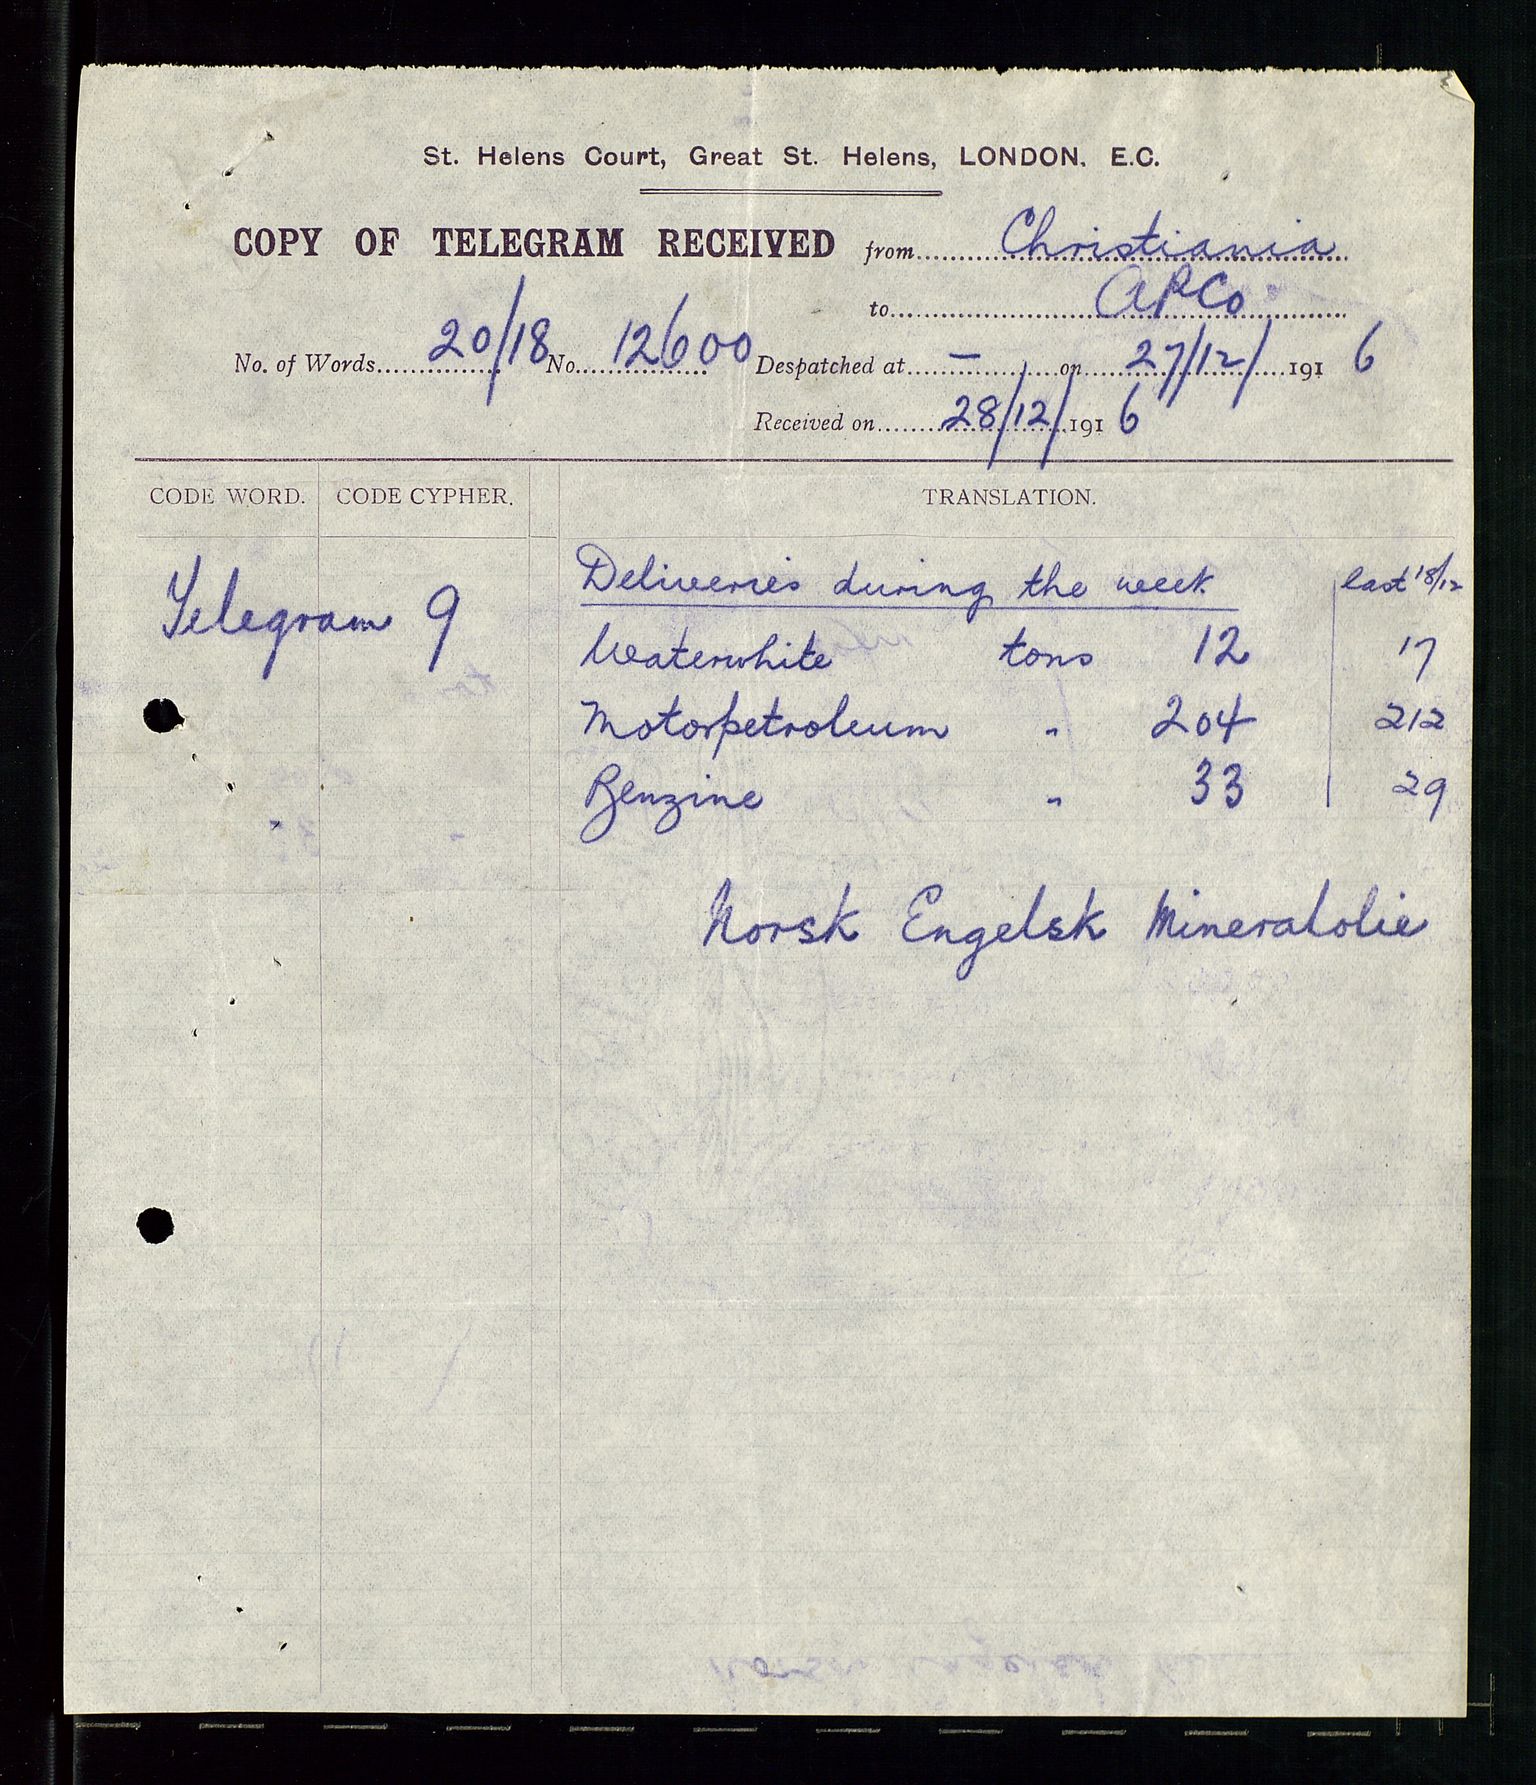 St. Helens Court, Great St. Helens, LONDON. E.C.
COPY OF TELEGRAM RECEIVED from Christiania
to APCo
No. of Words 20/18 No. 12600 Despatched at — on 27/12/ 1916
Received on 28/12/ 1916
CODE WORD. CODE CYPHER. TRANSLATION.
Telegram 9 Deliveries during the week last 18/12
Waterwhite tons 12 17
Motorpetroleum " 204 212
Benzine " 33 29
Norsk Engelsk Mineralolie